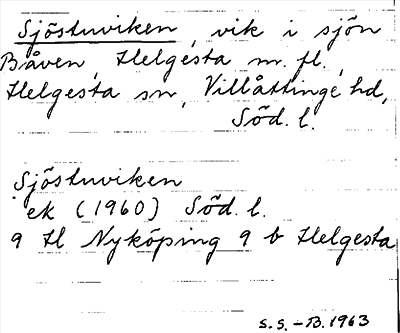 Sjöstuviken, vik i sjön
Båven, Helgesta m. fl.,
Helgesta sn, Villåttinge hd,
Söd. l.
Sjöstuviken
ek (1960) Söd. l.
9 H Nyköping 9 b Helgesta
S.S. - B. 1963